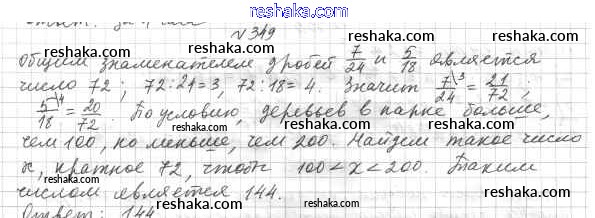 reshaka.com
№ 349
Общим знаменателем дробей 7/24 и 5/18 является
число 72; 72:21=3, 72:18=4. Значит 7\3/24 = 21/72;
5\4/18 = 20/72. По условию, деревьев в парке больше,
чем 100, но меньше, чем 200. Найдем такое число
x, кратное 72, чтобы 100 < x < 200. Таким
числом является 144.
Ответ: 144
reshaka.com reshaka.com reshaka.com
reshaka.com reshaka.com reshaka.com
reshaka.com reshaka.com reshaka.com